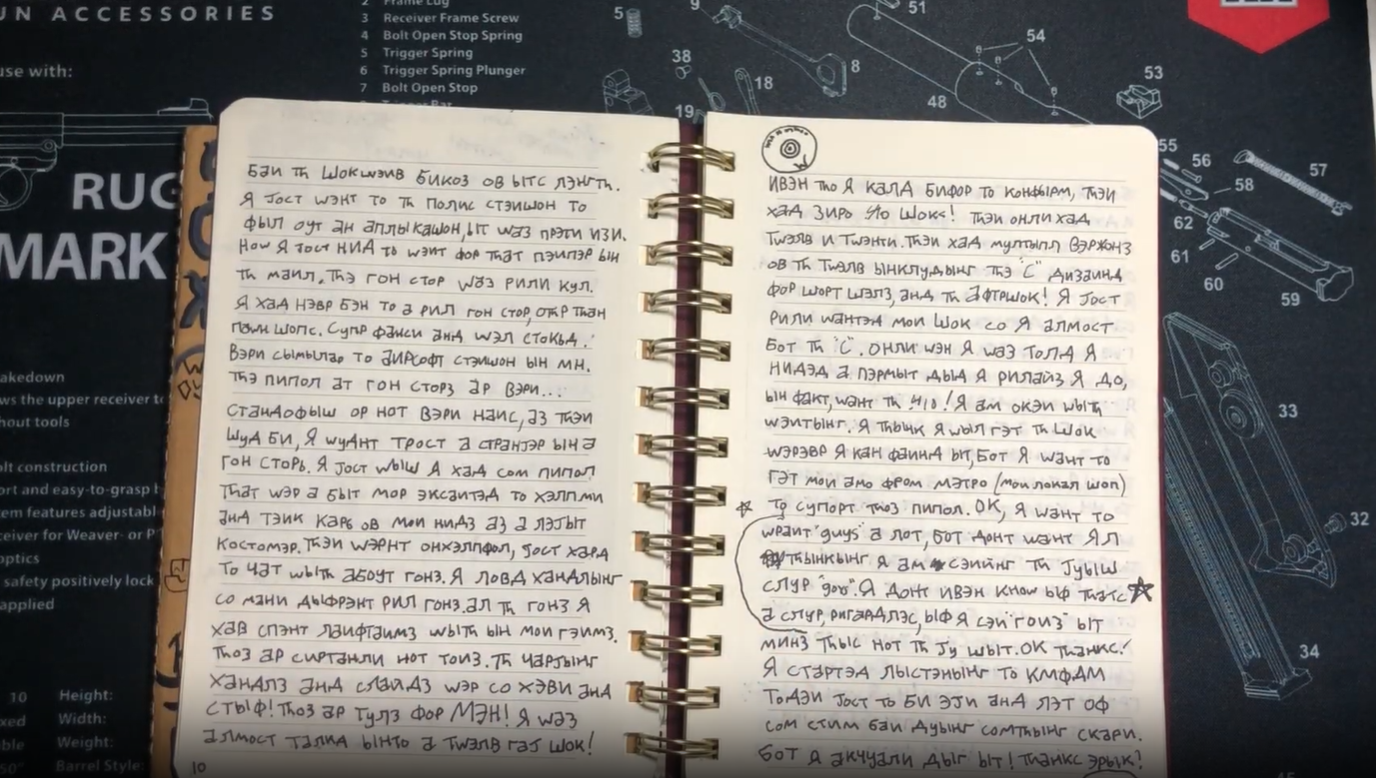 UN ACCESSORIES
use with:
RUG
MARK
2 Frame Lug
3 Receiver Frame Screw
4 Bolt Open Stop Spring
5 Trigger Spring
6 Trigger Spring Plunger
7 Bolt Open Stop
5
9
38
8
18
19
51
54
48
53
55
56
57
58
62
61
60
59
33
32
34
akedown
ws the upper receiver to
hout tools
olt construction
ort and easy-to-grasp
em features adjustabl
ceiver for Weaver- or P
optics
safety positively lock
applied
10 Height:
Width:
Weight:
Barrel Style:
бай тһ шокwэив бикоз ов ытс лэнгтһ.
Я јост wэнт то тһ полис стэишон то
фыл оут ан аплыкашон, ыт wаз прэти изи.
Ноw я јост нид то wэит фор тһат пэипэр ын
тһ маил. Тһэ гон стор wаз рили кул.
Я хад нэвр бэн то а рил гон стор, отһр тһан
паwн шопс. Супр фанси анд wэл стокьд.
Вэри сымылар то аирсофт стэишон ын мн.
Тһэ пипол ат гон сторз ар вэри...
стандофыш ор нот вэри наис, аз тһэи
шуд би, я wуднт трост а странјэр ын а
гон сторь. Я јост wыш я хад сом пипол
тһат wэр а быт мор эксаитэд то хэлпми
анд тэик карь ов мои нидз аз а лэјыт
костомэр. Тһэи wэрнт онхэлпфол, јост хард
то чат wытһ абоут гонз. Я ловд хандлынг
со мани дыфрэнт рил гонз. ал тһ гонз я
хав спэнт лаифтаимз wытһ ын мои гэимз.
Тһоз ар сиртанли нот тоиз. Тһ чарјынг
хандлз анд слаидз wэр со хэви анд
стыф! Тһоз ар тулз фор мэн! Я wаз
алмост талкд ынто а тwэлв гај шок!
10
ивэн тһо я калд бифор то конфырм, тһэи
хад зиро 410 шокс! Тһэи онли хад
тwэлв и тwэнти. Тһэи хад мултыпл вэржонз
ов тһ тwэлв ынклудынг тһэ "С" дизаинд
фор шорт шэлз, анд тһ афтршок! Я јост
рили wантэд мои шок со я алмост
бот тһ "С". Онли wэн я wаз толд я
нидэд а пэрмыт дыд я рилаиз я до,
ын факт, wант тһ .410! Я ам окэи wытһ
wэитынг. Я тһынк я wыл гэт тһ шок
wэрэвр я кан фаинд ыт, бот я wант то
гэт мои амо фром мэтро (мои локал шоп)
то супорт тһоз пипол. ОК, я wант то
wраит "guys" а лот, бот донт wант ял
тһынкынг я ам сэиинг тһ јуыш
слур "goy". Я донт ивэн кноw ыф тһатс
а слур, ригардлэс, ыф я сэи "гоиз" ыт
минз тһыс нот тһ ју шыт. ОК тһанкс!
Я стартэд лыстэнынг то КМФДМ
тодэи јост то би эји анд лэт оф
сом стим баи дуынг сомтһынг скари.
бот я акчуали дыг ыт! тһанкс эрык!